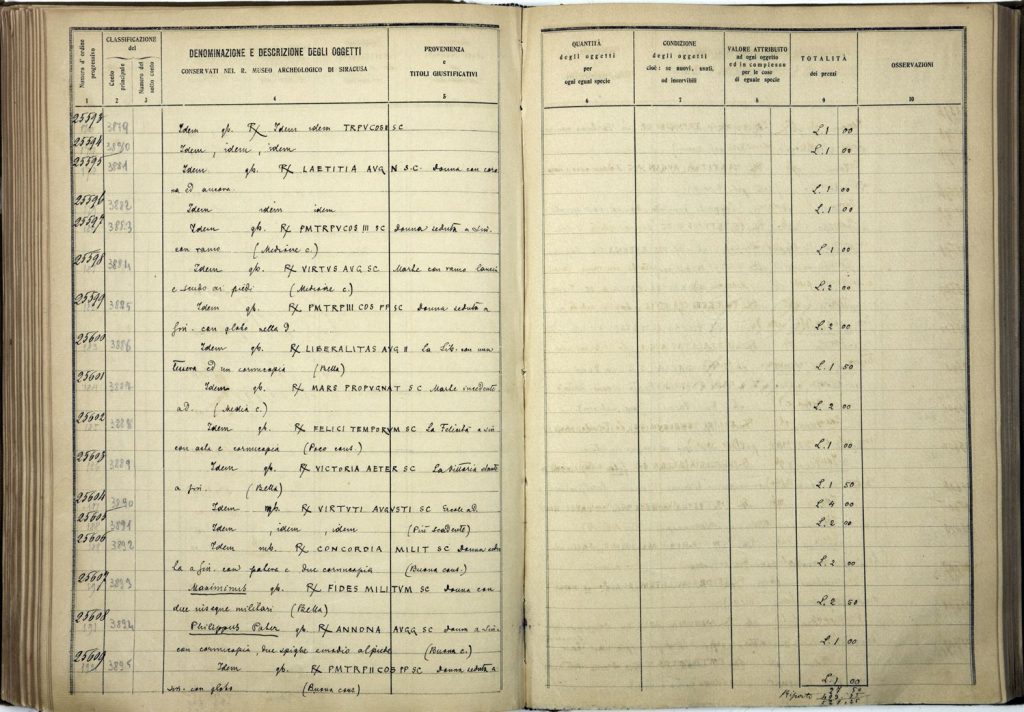 Numero d'ordine progressivo
CLASSIFICAZIONE del
Conto principale
Numero del sotto conto
DENOMINAZIONE E DESCRIZIONE DEGLI OGGETTI
CONSERVATI NEL R. MUSEO ARCHEOLOGICO DI SIRACUSA
PROVENIENZA
e
TITOLI GIUSTIFICATIVI
1 2 3 4 5
25593 3879 Idem gb. R/ Idem idem TRPVCOSII SC
25594 3880 Idem, idem, idem
25595 3881 Idem gb. R/ LAETITIA AVG N S.C. Donna con coro
na ed ancora.
25596 3882 Idem idem idem
25597 3883 Idem gb. R/ PMTRPVCOS III SC Donna seduta a sin.
con ramo (Mediocre c.)
25598 3884 Idem gb. R/ VIRTVS AVG SC Marte con ramo lancia
e scudo ai piedi (Mediocre c.)
25599 3885 Idem gb. R/ PMTRPIII COS PP SC Donna seduta a
sin. con globo nella d.
25600 3886 Idem gb. R/ LIBERALITAS AVG II La Lib. con una
tessera ed un cornucopia (Bella)
25601 3887 Idem gb. R/ MARS PROPVGNAT SC Marte incedente
a d. (Media c.)
25602 3888 Idem gb. R/ FELICI TEMPORVM SC La Felicità a sin
con asta e cornucopia (Poco cons.)
25603 3889 Idem gb. R/ VICTORIA AETER SC La Vittoria stante
a sin. (Bella)
25604 3890 Idem mb. R/ VIRTVTI AVGVSTI SC Ercole a d.
25605 3891 Idem, idem, idem (Più scadente)
25606 3892 Idem mb. R/ CONCORDIA MILIT SC Donna sedu
ta a sin. con patera e due cornucopia (Buona cons.)
25607 3893 Maximinus gb. R/ FIDES MILITVM SC Donna con
due insegne militari (Bella)
25608 3894 Philippus Pater gb. R/ ANNONA AVGG SC Donna a sin
con cornucopia, due spighe e modio al piede (Buona c.)
25609 3895 Idem gb. R/ PMTRPII COS PP SC Donna seduta a
sin. con globo (Buona cons)
QUANTITÀ
degli oggetti
per
ogni egual specie
CONDIZIONE
degli oggetti
cioè: se nuovi, usati,
od inservibili
VALORE ATTRIBUITO
ad ogni oggetto
ed in complesso
per le cose
di eguale specie
TOTALITÀ
dei prezzi
OSSERVAZIONI
6 7 8 9 10
L. 1 00
L. 1 00
L. 1 00
L. 1 00
L. 1 00
L. 2 00
L. 2 00
L. 1 50
L. 2 00
L. 1 00
L. 1 50
L. 4 00
L. 2 00
L. 2 00
L. 2 50
L. 1 00
L. 1 00
Riporto